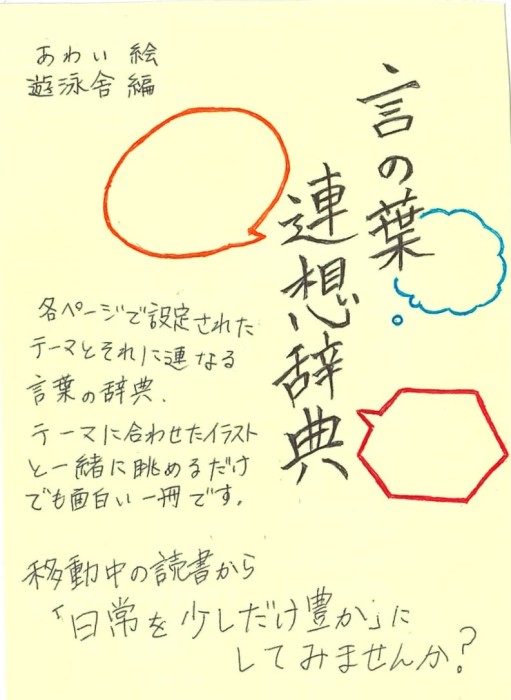 あわい 絵
遊泳舎 編
言の葉
連想辞典
各ページで設定された
テーマとそれに連なる
言葉の辞典.
テーマに合わせたイラスト
と一緒に眺めるだけ
でも面白い一冊です。
移動中の読書から
「日常を少しだけ豊か」に
してみませんか?